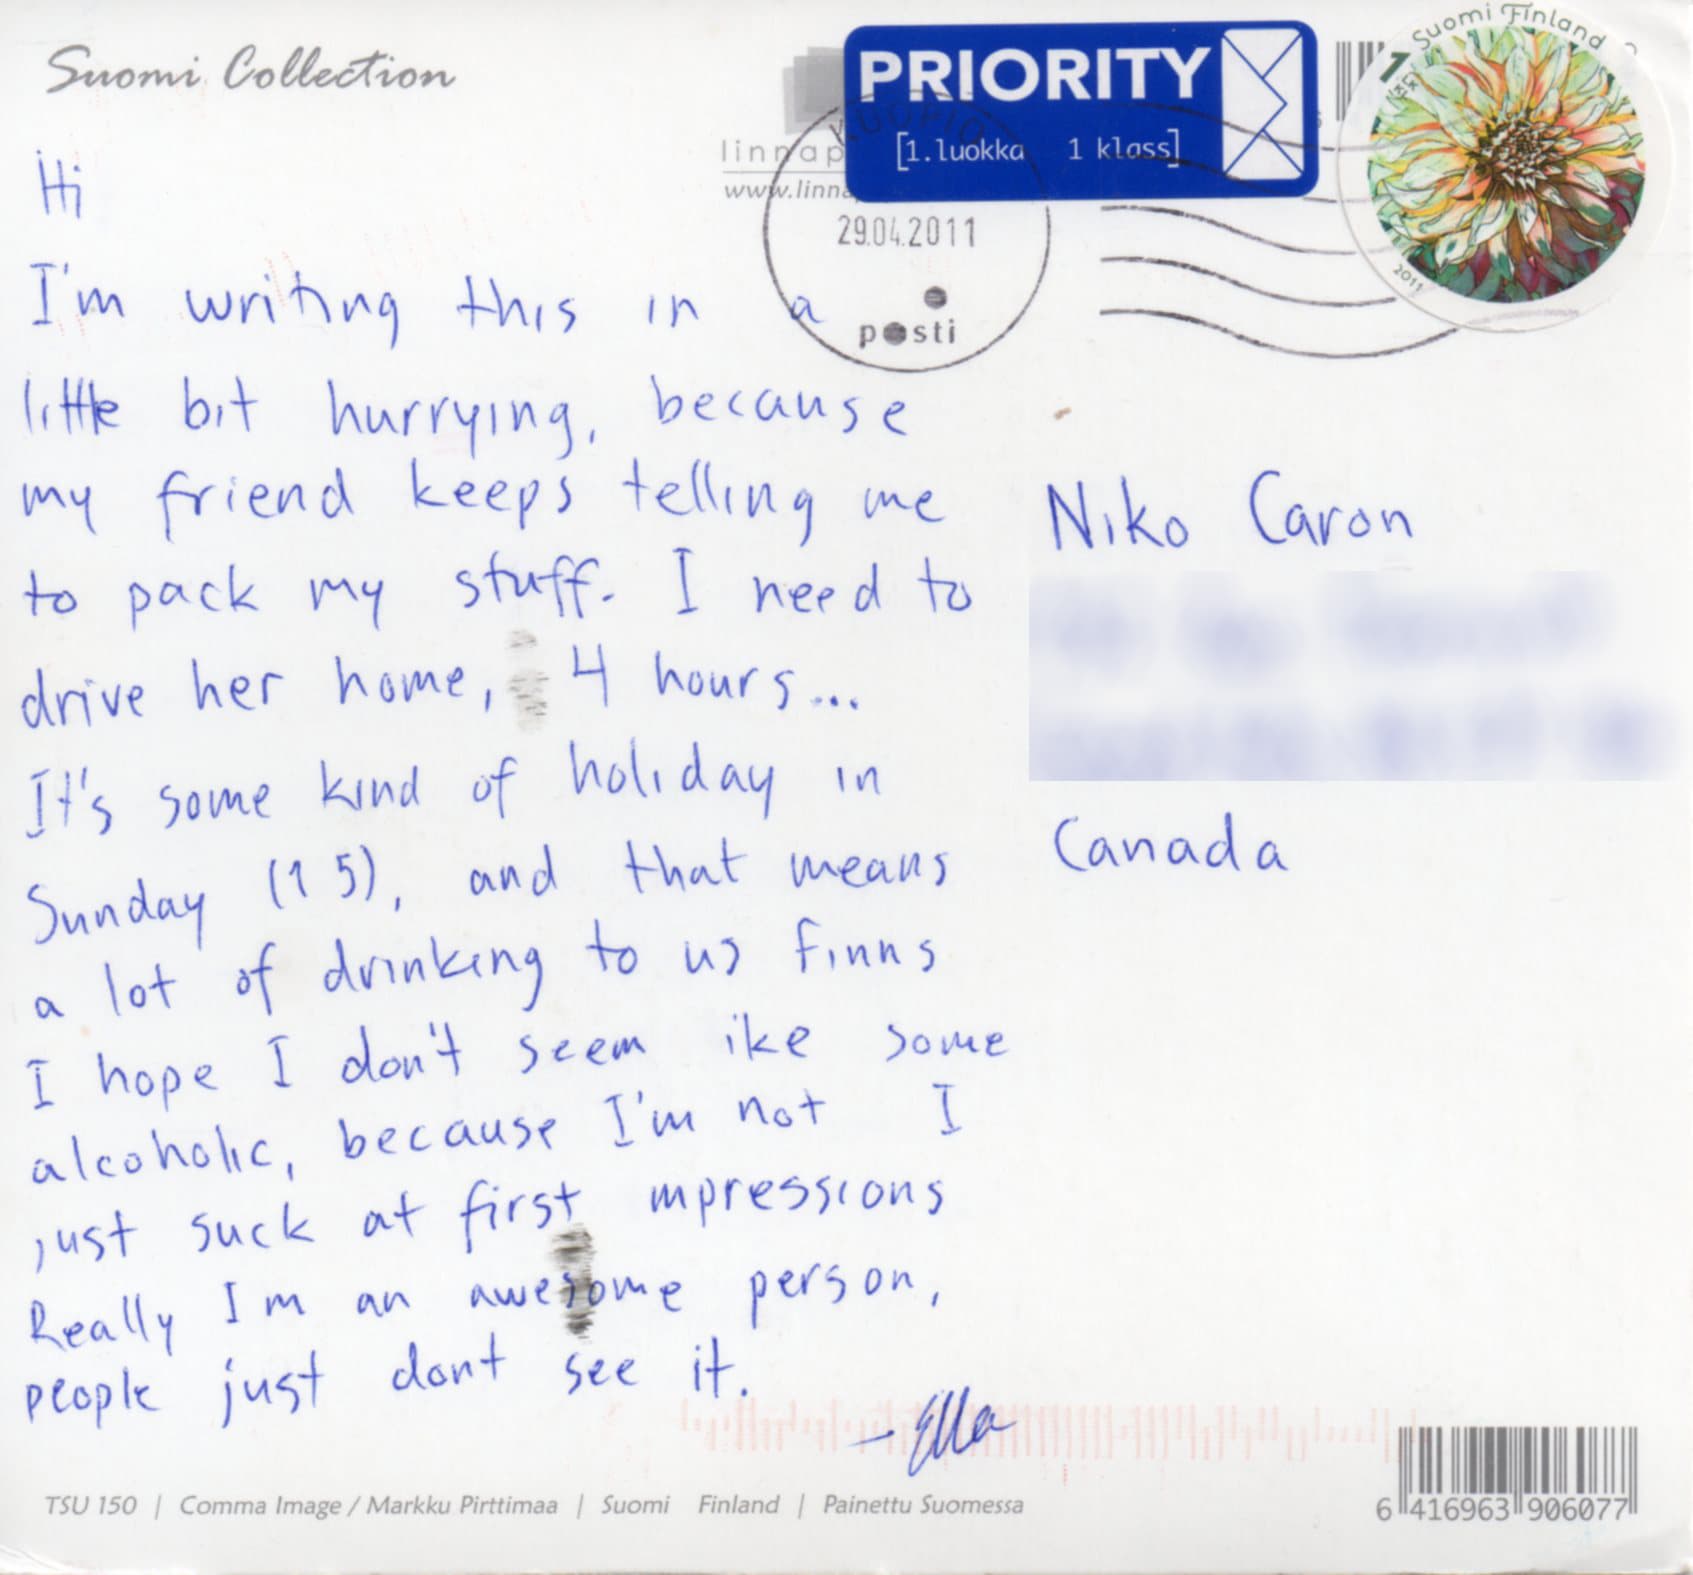 Suomi Collection
PRIORITY
[1.luokka 1 klass]
Suomi Finland
1
LX
LK
2011
linnap
www.linna
KUOPIO
29.04.2011
posti
Hi
I'm writing this in a
little bit hurrying, because
my friend keeps telling me
to pack my stuff. I need to
drive her home, 4 hours...
It's some kind of holiday in
Sunday (1 5), and that means
a lot of drinking to us finns
I hope I don't seem ike some
alcoholic, because I'm not I
just suck at first mpressions
Really I'm an awesome person,
people just dont see it.
- Ella
Niko Caron
Canada
TSU 150 | Comma Image / Markku Pirttimaa | Suomi Finland | Painettu Suomessa
6 416963 906077